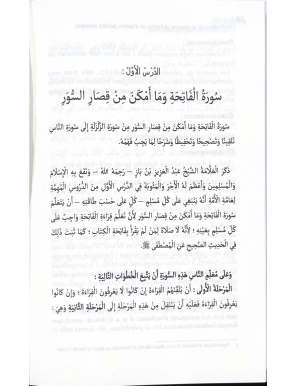 الدَّرْسُ الْأَوَّلُ :
سُورَةُ الْفَاتِحَةِ وَمَا أَمْكَنَ مِنْ قِصَارِ السُّوَرِ
سُورَةُ الْفَاتِحَةِ وَمَا أَمْكَنَ مِنْ قِصَارِ السُّوَرِ مِنْ سُورَةِ الزَّلْزَلَةِ إِلَى سُورَةِ النَّاسِ
تَلْقِينًا وَتَصْحِيحًا وَتَحْفِيظًا وَشَرْحًا لِمَا يَجِبُ فَهْمُهُ.
ذَكَرَ الْعَلَّامَةُ الشَّيْخُ عَبْدُ الْعَزِيزِ بْنُ بَازٍ – رَحِمَهُ اللهُ – وَنَفَعَ بِهِ الْإِسْلَامَ
وَالْمُسْلِمِينَ وَأَعْظَمَ لَهُ الْأَجْرَ وَالْمَثُوبَةَ فِي الدَّرْسِ الْأَوَّلِ مِنَ الدُّرُوسِ الْمُهِمَّةِ
لِعَامَّةِ الْأُمَّةِ أَنَّهُ يَنْبَغِي عَلَى كُلِّ مُسْلِمٍ – كُلٍّ عَلَى حَسَبِ طَاقَتِهِ – أَنْ يَتَعَلَّمَ
قِرَاءَةَ الْفَاتِحَةِ وَمَا أَمْكَنَ مِنْ قِصَارِ السُّوَرِ لِأَنَّ تَعَلُّمَ قِرَاءَةِ الْفَاتِحَةِ وَاجِبٌ عَلَى
كُلِّ مُسْلِمٍ بِعَيْنِهِ ؛ لِأَنَّهُ لَا صَلَاةَ لِمَنْ لَمْ يَقْرَأْ بِفَاتِحَةِ الْكِتَابِ ؛ كَمَا ثَبَتَ ذَلِكَ
فِي الْحَدِيثِ الصَّحِيحِ عَنِ الْمُصْطَفَى ﷺ.
وَعَلَى مُعَلِّمِ النَّاسِ هَذِهِ السُّوَرَ أَنْ يَتَّبِعَ الْخُطُوَاتِ التَّالِيَةَ :
الْمَرْحَلَةُ الْأُولَى : أَنْ يُلَقِّنَهُمُ الْقِرَاءَةَ إِنْ كَانُوا لَا يَعْرِفُونَ الْقِرَاءَةَ ؛ وَإِنْ كَانُوا
يَعْرِفُونَ الْقِرَاءَةَ فَعَلَيْهِ أَنْ يَنْتَقِلَ مِنْ هَذِهِ الْمَرْحَلَةِ إِلَى الْمَرْحَلَةِ الثَّانِيَةِ وَهِيَ :